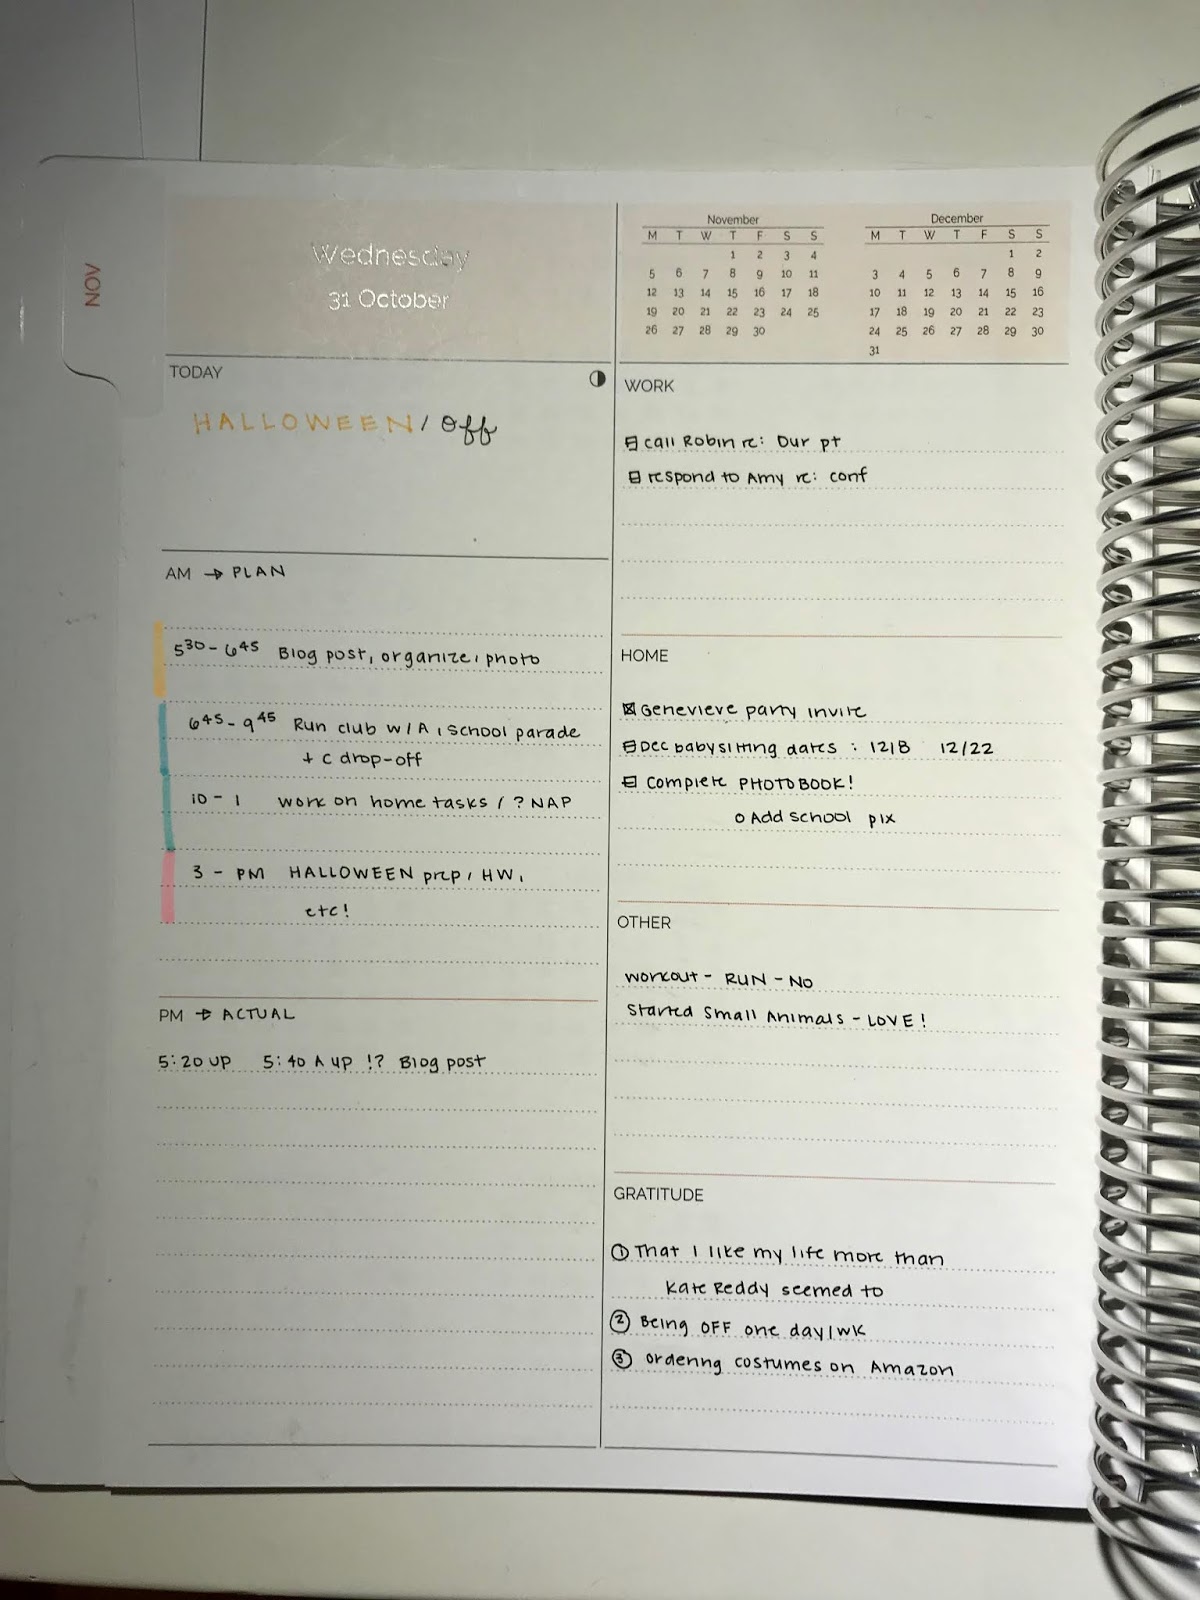 NOV
Wednesday
31 October
November
M T W T F S S
1 2 3 4
5 6 7 8 9 10 11
12 13 14 15 16 17 18
19 20 21 22 23 24 25
26 27 28 29 30
December
M T W T F S S
1 2
3 4 5 6 7 8 9
10 11 12 13 14 15 16
17 18 19 20 21 22 23
24 25 26 27 28 29 30
31
TODAY
HALLOWEEN / Off
AM → PLAN
5³⁰ - 6⁴⁵ Blog post, organize, photo
6⁴⁵ - 9⁴⁵ Run club w/A, school parade
+ C drop-off
10 - 1 work on home tasks / ? NAP
3 - PM HALLOWEEN prep, HW,
etc!
PM → ACTUAL
5:20 up 5:40 A up !? Blog post
WORK
call Robin re: Dur pt
respond to Amy re: conf
HOME
Genevieve party invite
Dec babysitting dates : 12/8 12/22
Complete PHOTOBOOK!
o Add school pix
OTHER
workout - RUN - NO
Started Small Animals - LOVE!
GRATITUDE
① That I like my life more than
Kate Reddy seemed to
② Being OFF one day/wk
③ ordering costumes on Amazon